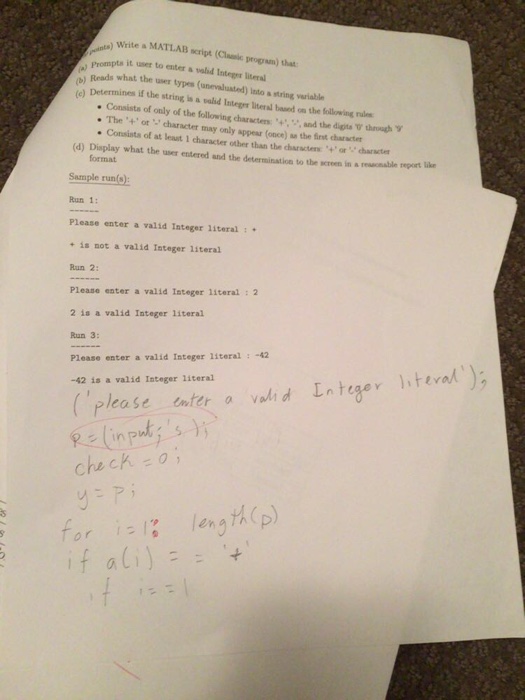 points) Write a MATLAB script (Classic program) that:
(a) Prompts it user to enter a valid Integer literal
(b) Reads what the user types (unevaluated) into a string variable
(c) Determines if the string is a valid Integer literal based on the following rules:
• Consists of only of the following characters: '+', '-', and the digits '0' through '9'
• The '+' or '-' character may only appear (once) as the first character
• Consists of at least 1 character other than the characters: '+' or '-' character
(d) Display what the user entered and the determination to the screen in a reasonable report like
format
Sample run(s):
Run 1:
------
Please enter a valid Integer literal : +
+ is not a valid Integer literal
Run 2:
------
Please enter a valid Integer literal : 2
2 is a valid Integer literal
Run 3:
------
Please enter a valid Integer literal : -42
-42 is a valid Integer literal
('please enter a valid Integer literal');
P = (input;'s');
check = 0;
y = P;
for i=1: length(p)
if a(i) == '+'
if i==1